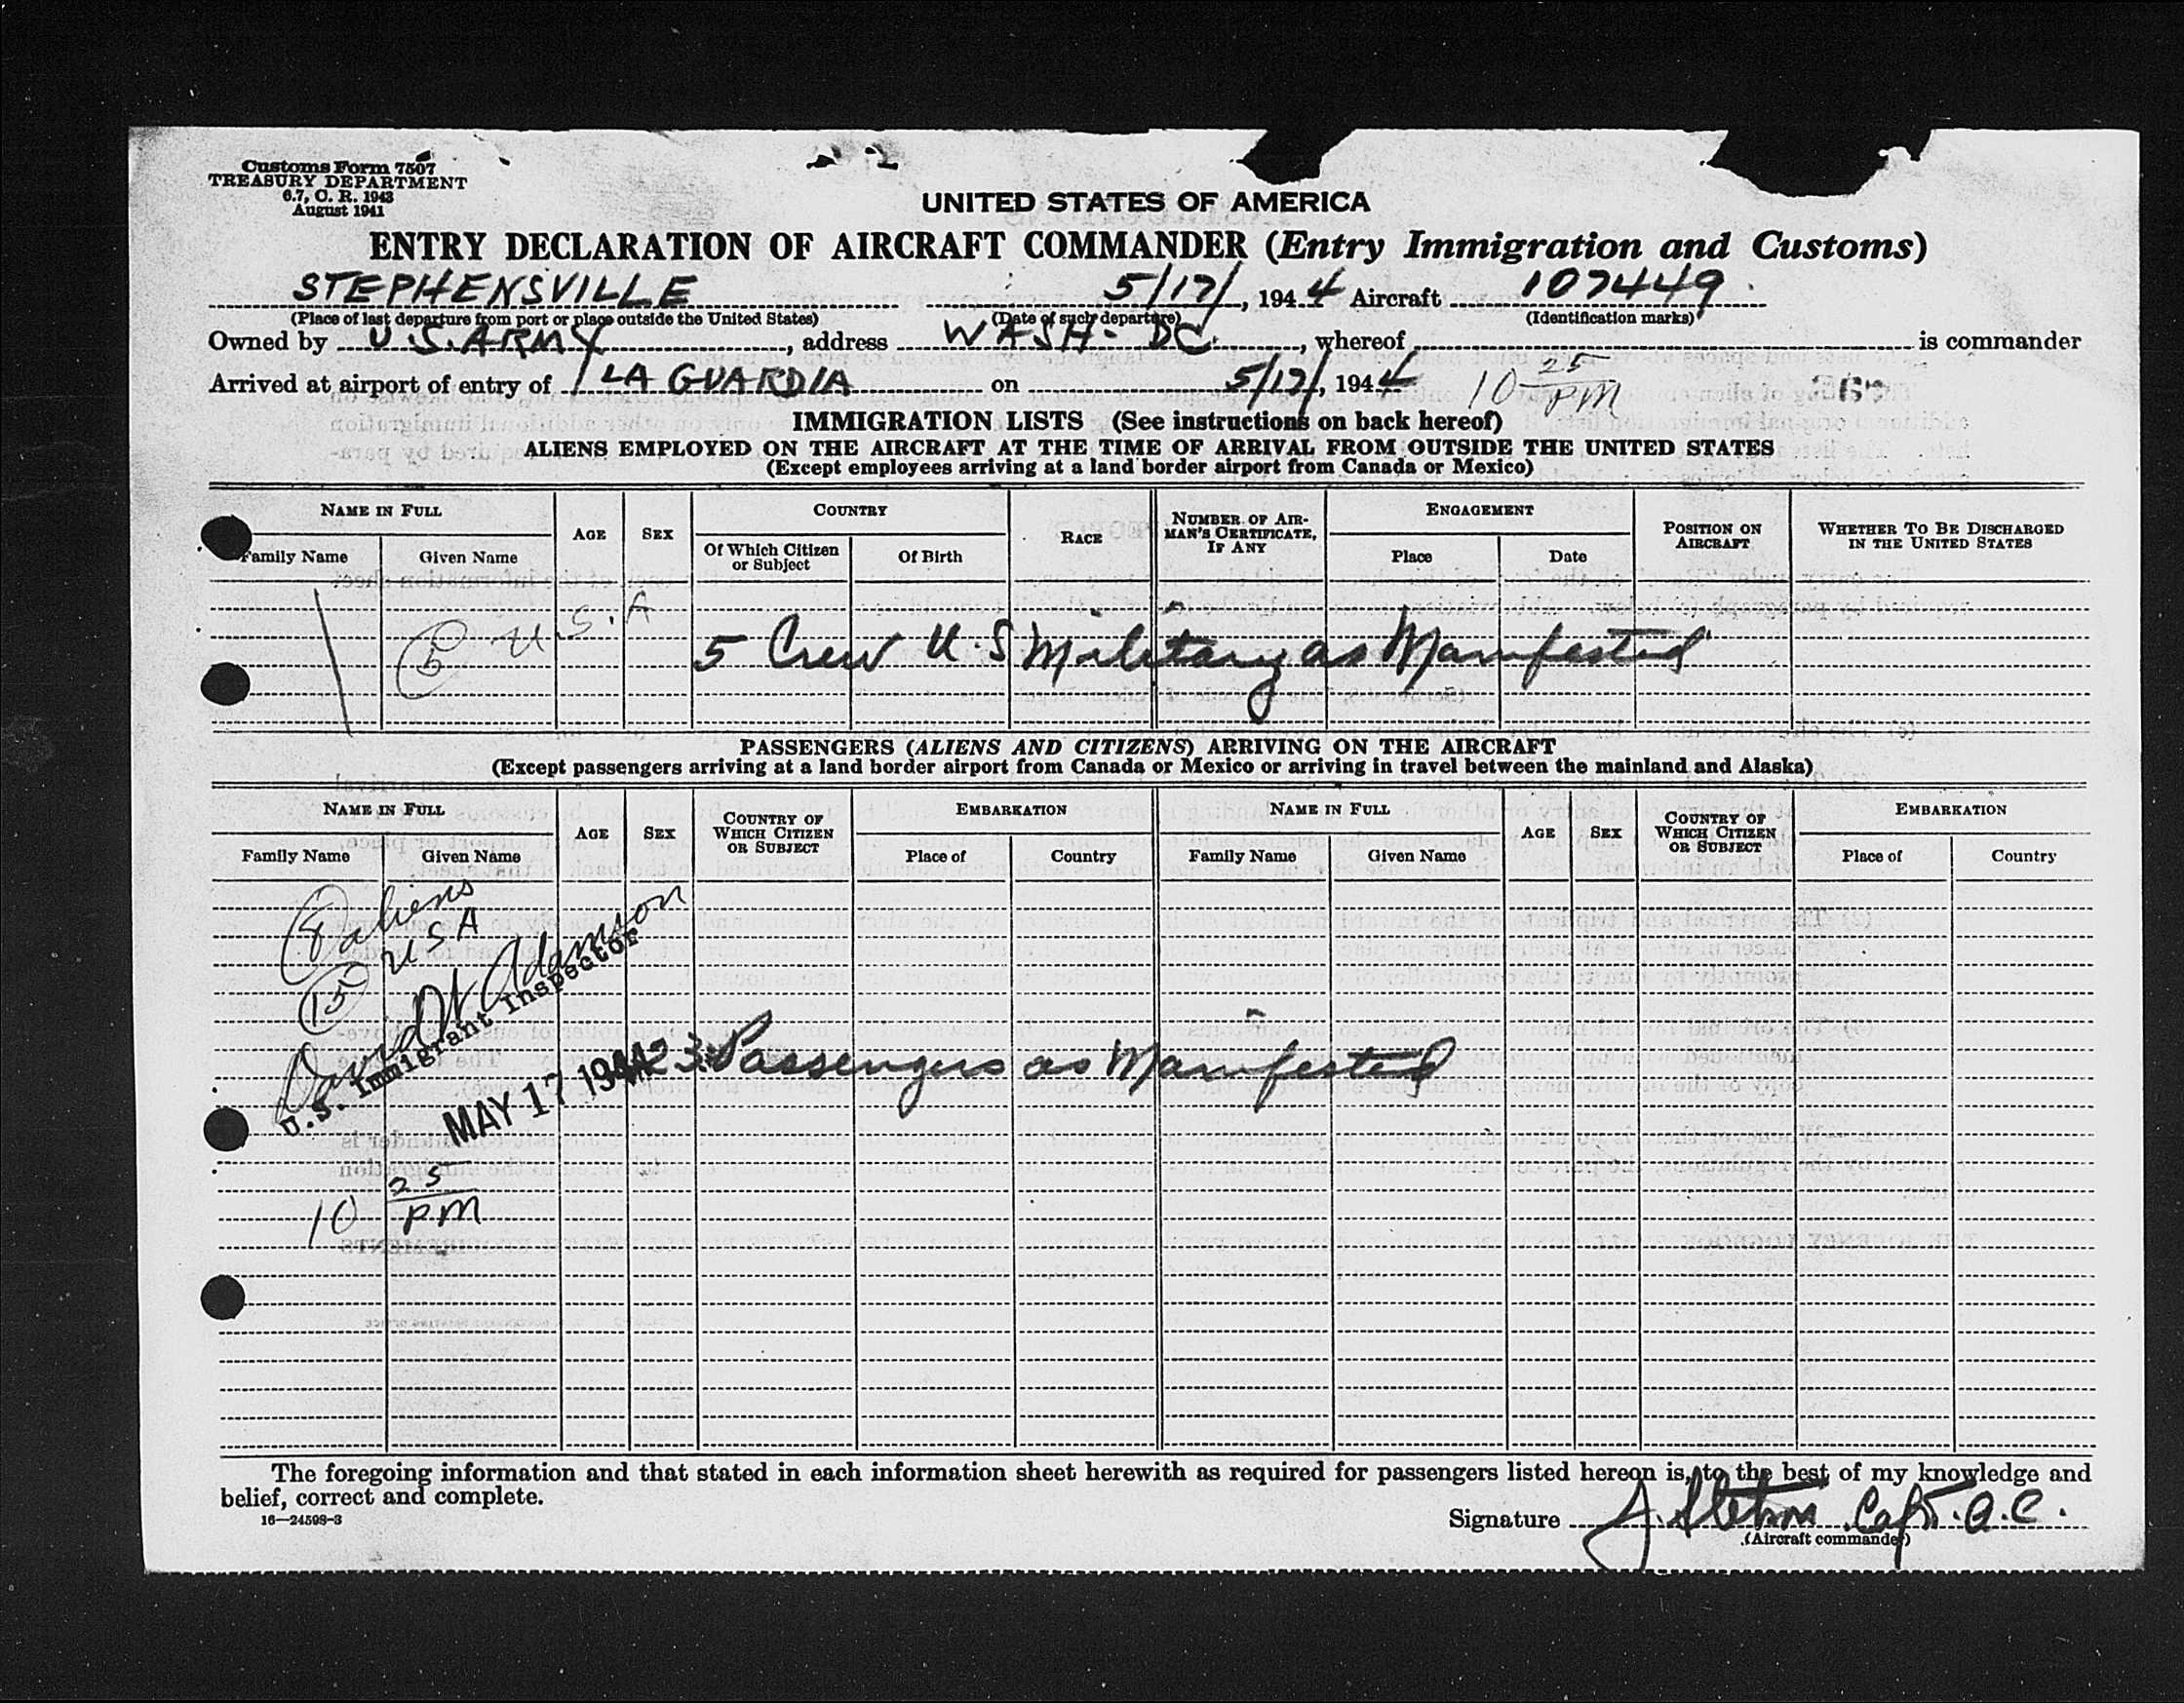 Customs Form 7507
TREASURY DEPARTMENT
6.7, C. R. 1943
August 1941
UNITED STATES OF AMERICA
ENTRY DECLARATION OF AIRCRAFT COMMANDER (Entry Immigration and Customs)
STEPHENSVILLE 5/17/, 1944 Aircraft 107449
(Place of last departure from port or place outside the United States) (Date of such departure) (Identification marks)
Owned by U.S. ARMY, address WASH. DC., whereof is commander
Arrived at airport of entry of LA GUARDIA on 5/17/, 1944 10 25 PM
IMMIGRATION LISTS (See instructions on back hereof)
ALIENS EMPLOYED ON THE AIRCRAFT AT THE TIME OF ARRIVAL FROM OUTSIDE THE UNITED STATES
(Except employees arriving at a land border airport from Canada or Mexico)
NAME IN FULL AGE SEX COUNTRY RACE NUMBER OF AIRMAN'S CERTIFICATE, IF ANY ENGAGEMENT POSITION ON AIRCRAFT WHETHER TO BE DISCHARGED IN THE UNITED STATES
Family Name Given Name Of Which Citizen or Subject Of Birth Place Date
5 U.S.A
5 Crew U.S Military as Manifested
PASSENGERS (ALIENS AND CITIZENS) ARRIVING ON THE AIRCRAFT
(Except passengers arriving at a land border airport from Canada or Mexico or arriving in travel between the mainland and Alaska)
NAME IN FULL AGE SEX COUNTRY OF WHICH CITIZEN OR SUBJECT EMBARKATION NAME IN FULL AGE SEX COUNTRY OF WHICH CITIZEN OR SUBJECT EMBARKATION
Family Name Given Name Place of Country Family Name Given Name Place of Country
8 aliens
15 USA
David W Adamson
U.S. Immigrant Inspector
MAY 17 1944
23 Passengers as Manifested
10 25 PM
The foregoing information and that stated in each information sheet herewith as required for passengers listed hereon is, to the best of my knowledge and
belief, correct and complete.
16—24598-3
Signature J. Capt. A.C.
(Aircraft commander)